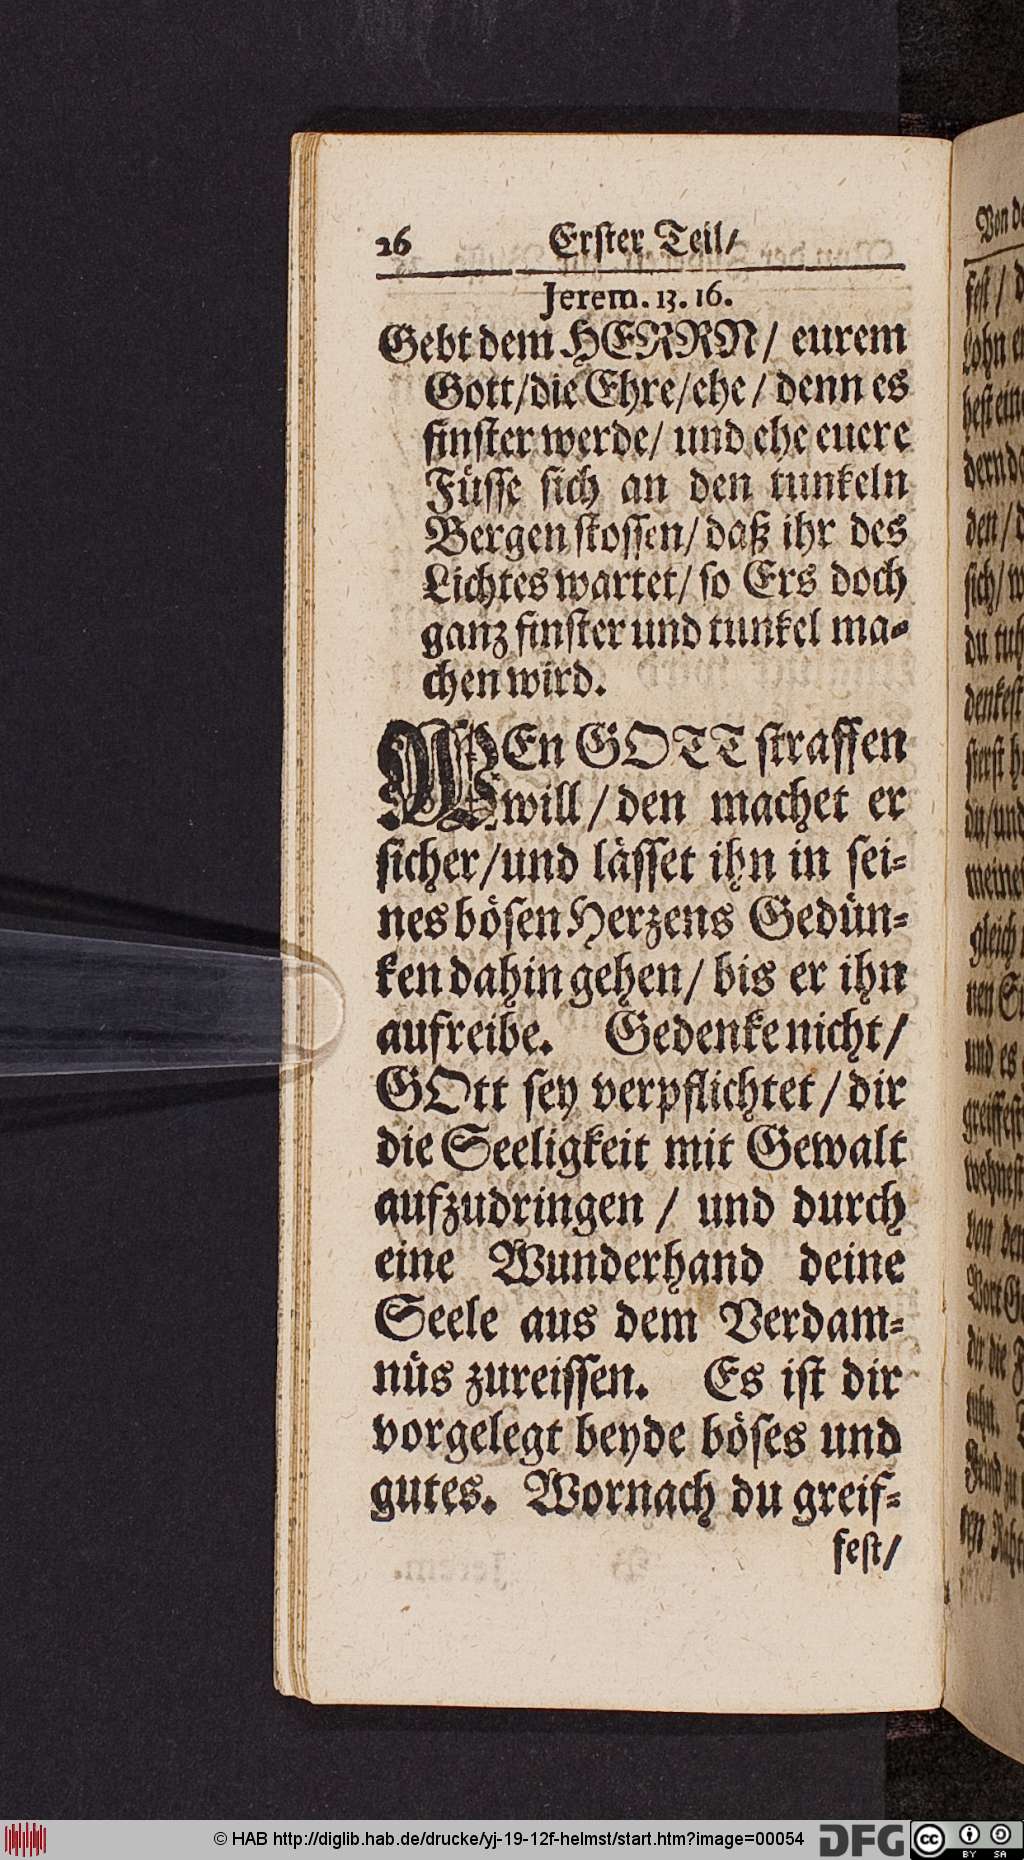 26 Erster Teil/
Jerem. 13. 16.
Gebt dem HERRN/ eurem
Gott/die Ehre/ehe/ denn es
finster werde/ und ehe euere
Füsse sich an den tunkeln
Bergen stossen/ daß ihr des
Lichtes wartet/ so Ers doch
ganz finster und tunkel ma-
chen wird.
WEn GOTT straffen
will/ den machet er
sicher/und lässet ihn in sei-
nes bösen Herzens Gedün-
ken dahin gehen/ bis er ihn
aufreibe. Gedenke nicht/
GOtt sey verpflichtet/ dir
die Seeligkeit mit Gewalt
aufzudringen/ und durch
eine Wunderhand deine
Seele aus dem Verdam-
nüs zureissen. Es ist dir
vorgelegt beyde böses und
gutes. Wornach du greif-
fest/
© HAB http://diglib.hab.de/drucke/yj-19-12f-helmst/start.htm?image=00054
DFG
cc BY SA